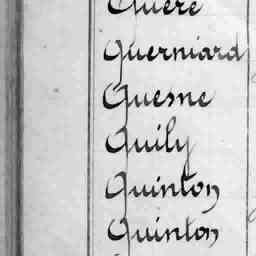 Quere
Querniard
Quesne
Quily
Quinton
Quinton